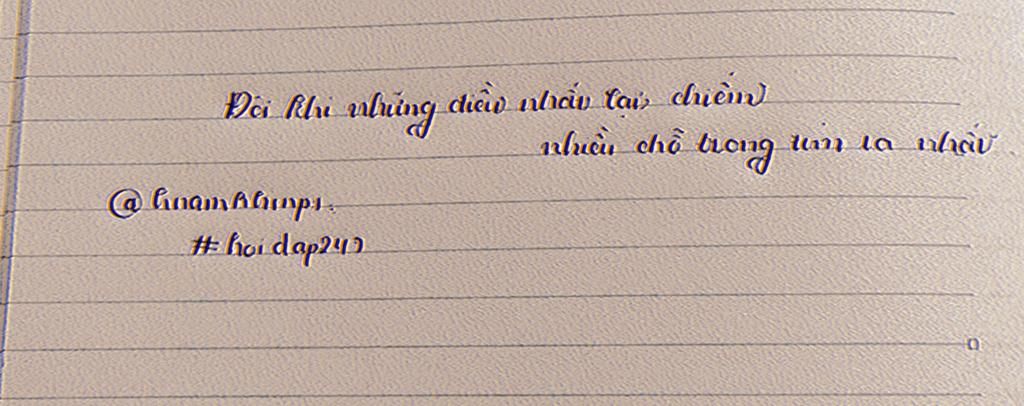 Đôi khi những điều nhất lại chiếm
nhiều chỗ trong tim ta nhất
#hoidap247